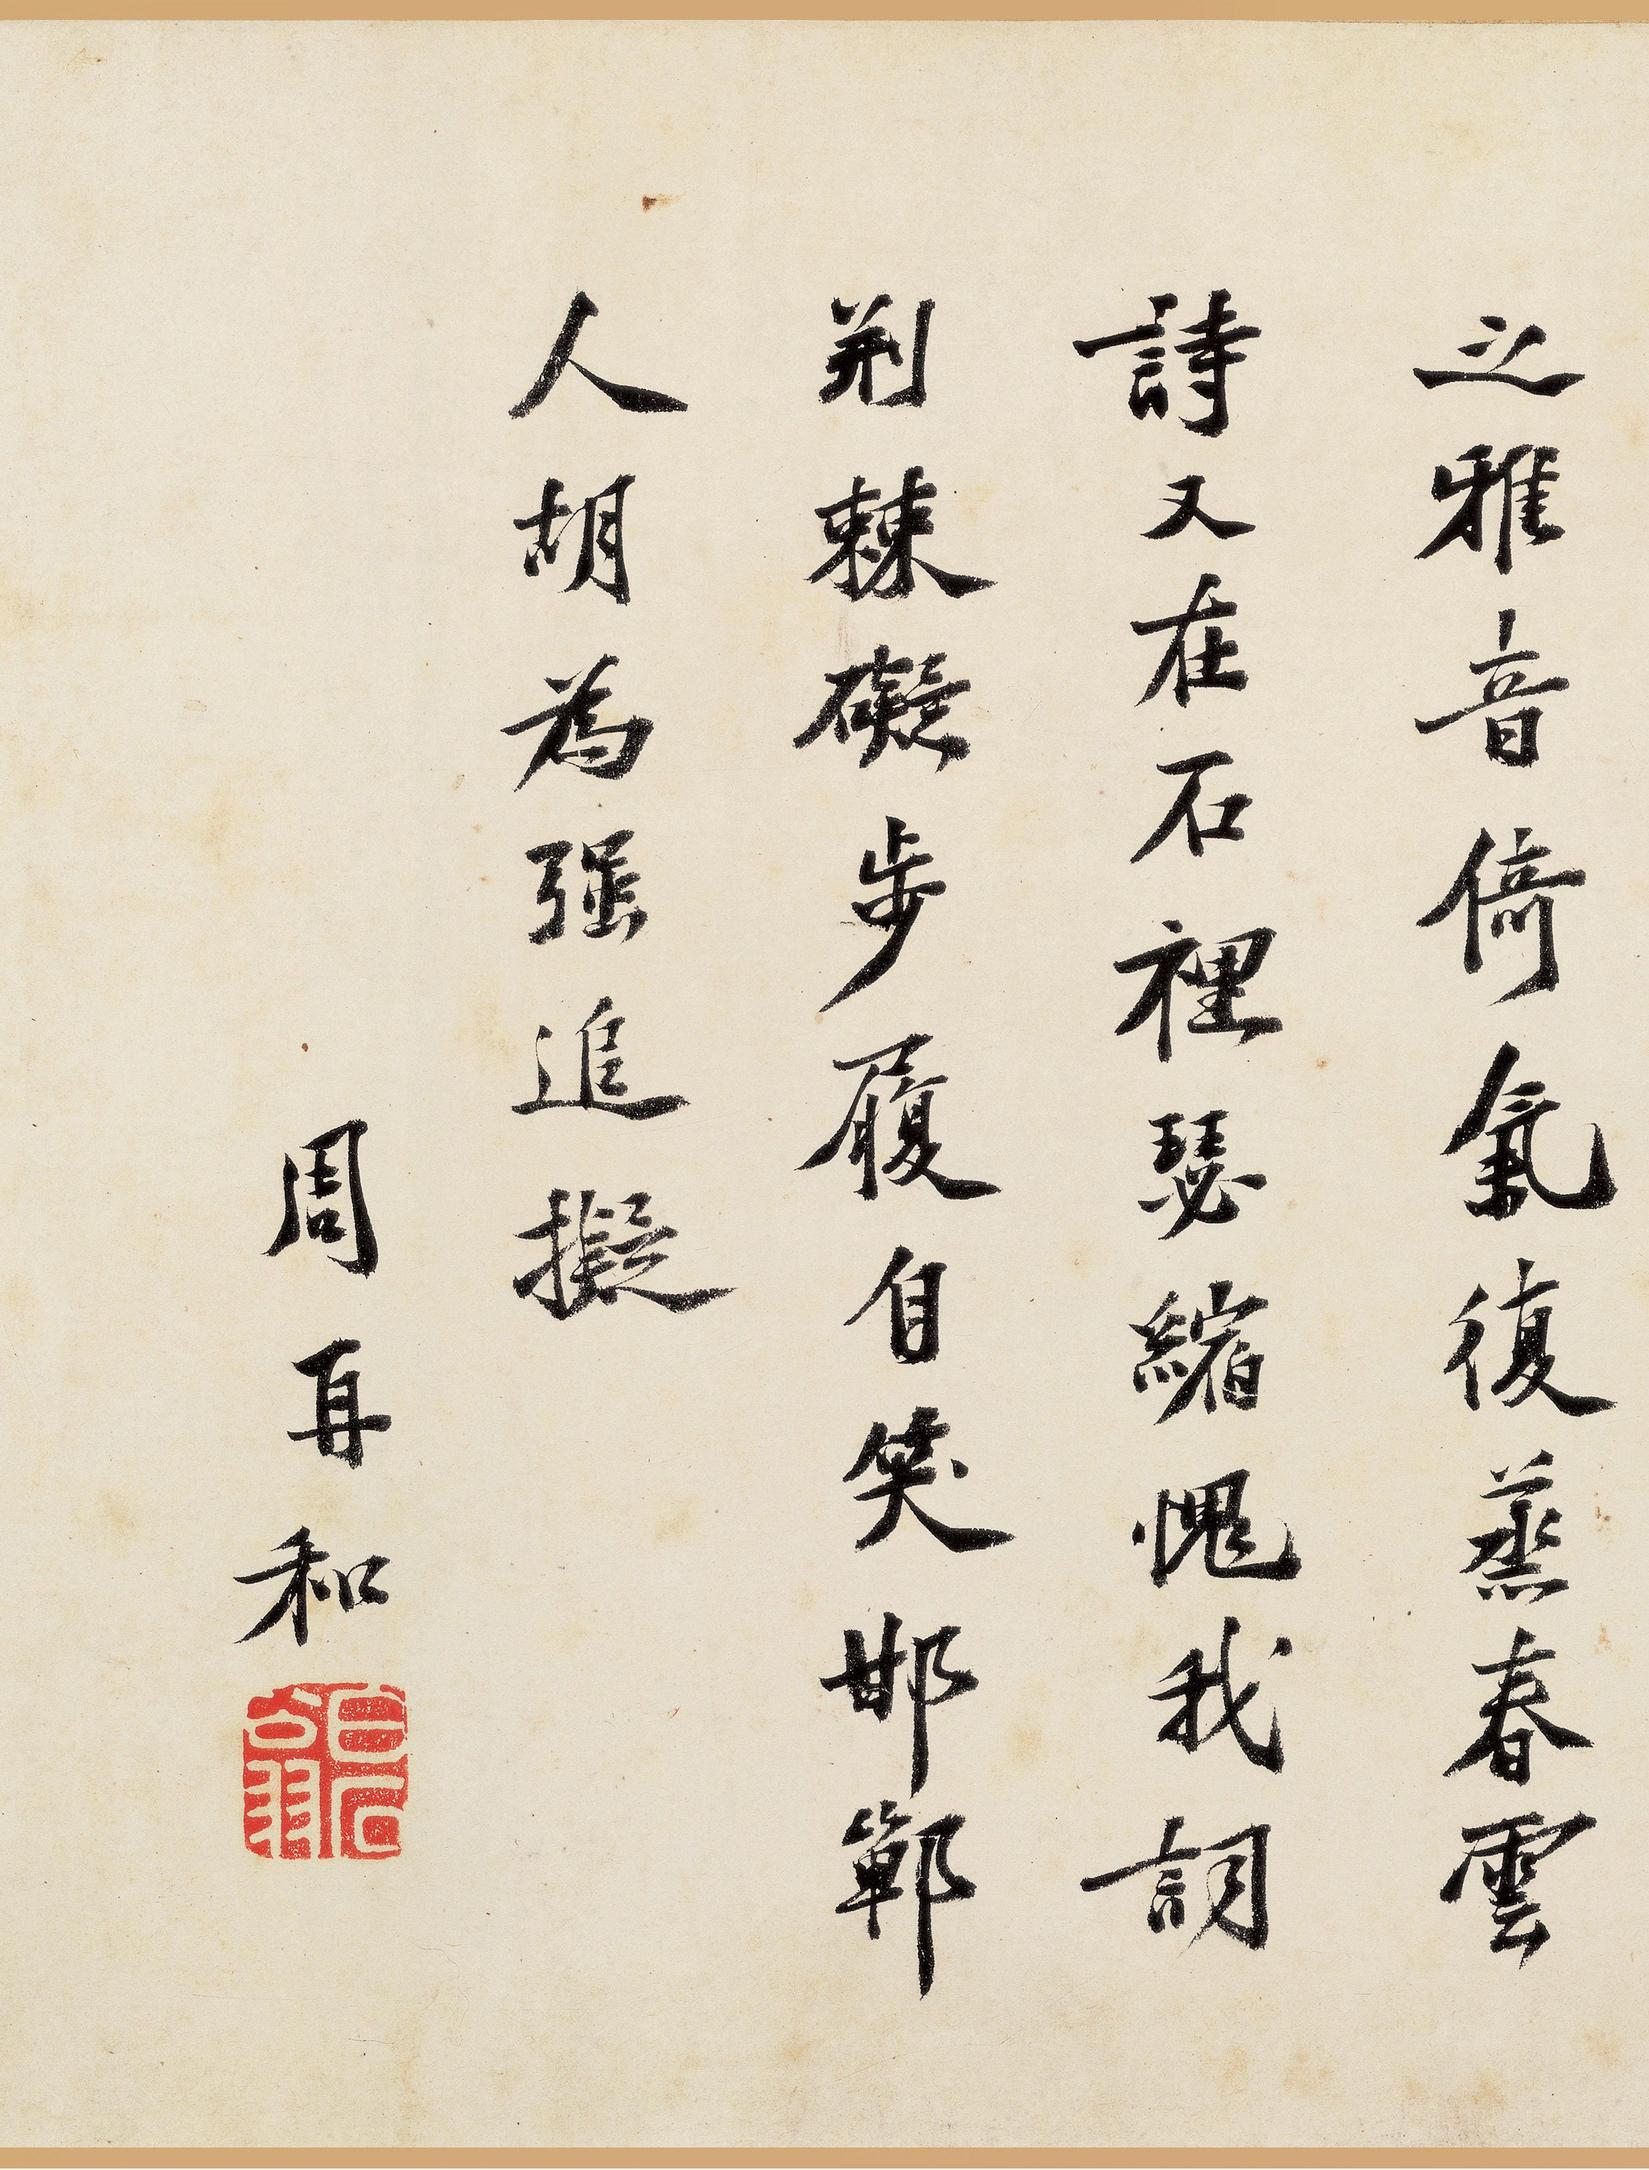 之雅音倚氣復蒸春雲
詩又在石裡瑟縮愧我詞
荆棘礙步履自笑邯鄲
人胡為强追擬
周再和